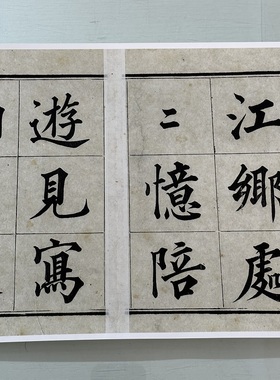 江鄉處
二憶陪
遊見寫